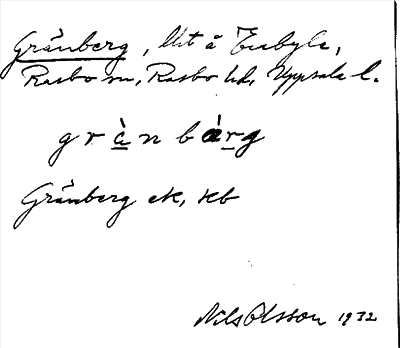 Gränberg, lht å Träbyle,
Rasbo sn, Rasbo hd, Uppsala l.
g r à n b à r g
Gränberg ek, kb
Nils Olsson 1932